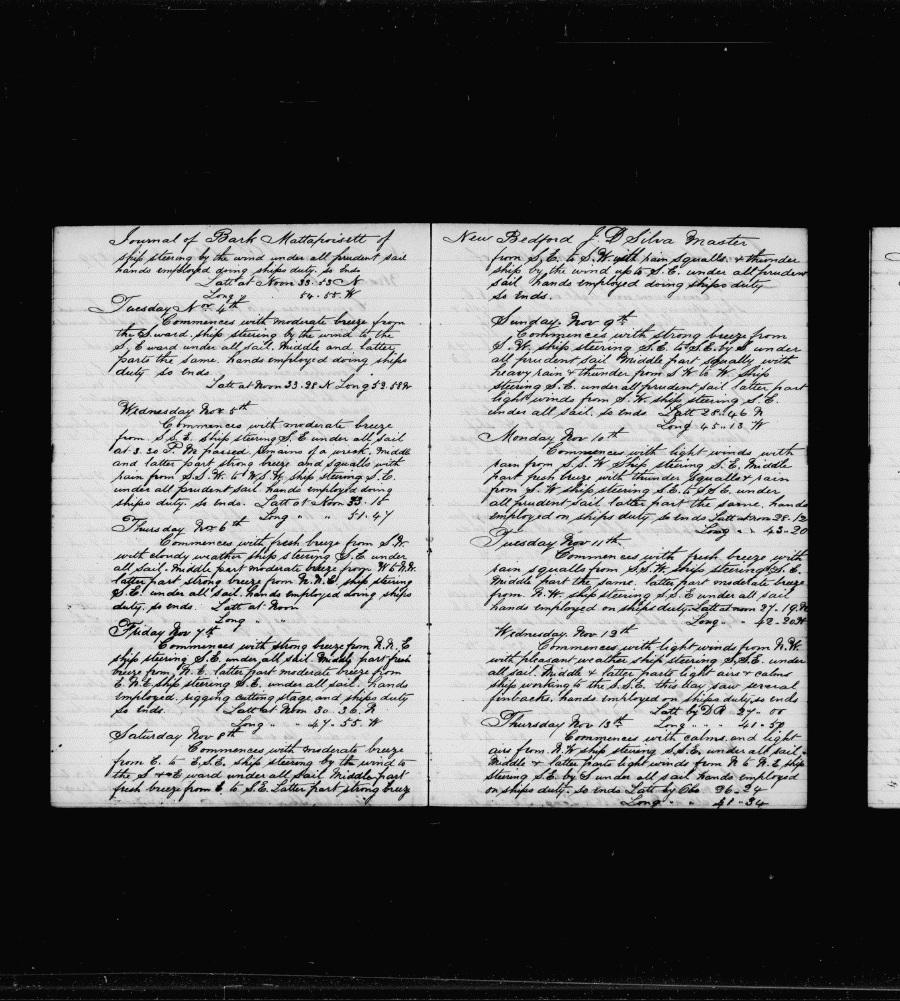 Journal of Bark Mattapoisett of
ship steering by the wind under all prudent sail
hands employed doing ships duty. so ends
Latt at Noon 33.53 N
Long " " 54.55. W
Tuesday Nov 4th
Commences with moderate breeze from
the S.ward. ship steering by the wind to the
S, E ward under all sail. Middle and latter,
parts the same. hands employed doing ships
duty so ends
Latt at Noon 33.28 N Long 53.58W
Wednesday Nov 5th
Commences with moderate breeze
from S.S.E. ship steering S.E under all sail
at 3.30 P.M passed remains of a wreck. Middle
and latter part strong breeze and squalls with
rain from S.S.W. to W.S.W, ship steering S.E.
under all prudent sail. hands employed doing
ships duty. so ends. Latt at Noon 33.15
Long " " 51.47
Thursday Nov 6th
Commences with fresh breeze from S.W.
with cloudy weather ship steering S.E under
all sail. Middle part moderate breeze from W to N.W.
latter part strong breeze from N.N.E, ship steering
S.E. under all sail. hands employed doing ships
duty. so ends. Latt at Noon
Long " "
Friday Nov 7th
Commences with strong breeze from N.N.E
ship steering S.E. under all sail. Middle part fresh
breeze from N.E. latter part moderate breeze from
E.N.E ship steering S.E. under all sail. hands
employed rigging cutting stage and ships duty
so ends. Latt at Noon 30.36. N
Long " " 47-55. W
Saturday Nov 8th
Commences with moderate breeze
from E. to E.S.E. ship steering by the wind to
the S & E ward under all sail. Middle part
fresh breeze from E. to S.E. Latter part strong breez
New Bedford J. D Silva Master
from S,E. to S.W. with rain squalls. & thunder
ship by the wind up to S.E. under all prudent
sail hands employed doing ships duty
so ends.
Sunday. Nov 9th
Commences with strong breeze from
S.W. ship steering S.E. to S.E. by S under
all prudent sail Middle part squally with
heavy rain & thunder from S W to W. Ship
steering S.E. under all prudent sail latter part
light winds from S.W. ship steering S.E.
under all sail. so ends Latt 28-46 N
Long 45-13 W
Monday Nov 10th
Commences with light winds with
rain from S.S.W Ship steering S.E. Middle
part fresh breeze with thunder squalls & rain
from S.W ship steering S.E. to S & E. under
all prudent sail latter part the same. hands
employed on ships duty, so ends Latt at noon 28.12
Long " " 43-20
Tuesday Nov 11th
Commences with fresh breeze with
rain squalls from S.S.W. ship steering S.S.E.
Middle part the same. latter part moderate breeze
from N.W. ship steering S.S.E under all sail
hands employed on ships duty. Latt at noon 27-19.N
Long " " 42-20W
Wednesday. Nov 12th
Commences with light winds from N.W.
with pleasant weather ship steering S,S.E. under
all sail. Middle & latter parts light airs & calms
ship working to the S.S.E. this day saw several
finbacks. hands employed on ships duty. so ends
Latt by D R 27-00
Thursday Nov 13th Long " " 41-50
Commences with calms. and light
airs from N.W ship steering S.S.E, under all sail
Middle & latter parts light winds from N to N.E, ship
steering S.E. by S under all sail hands employed
on ships duty. so ends Latt by Obs 26-24
Long " " 41-34